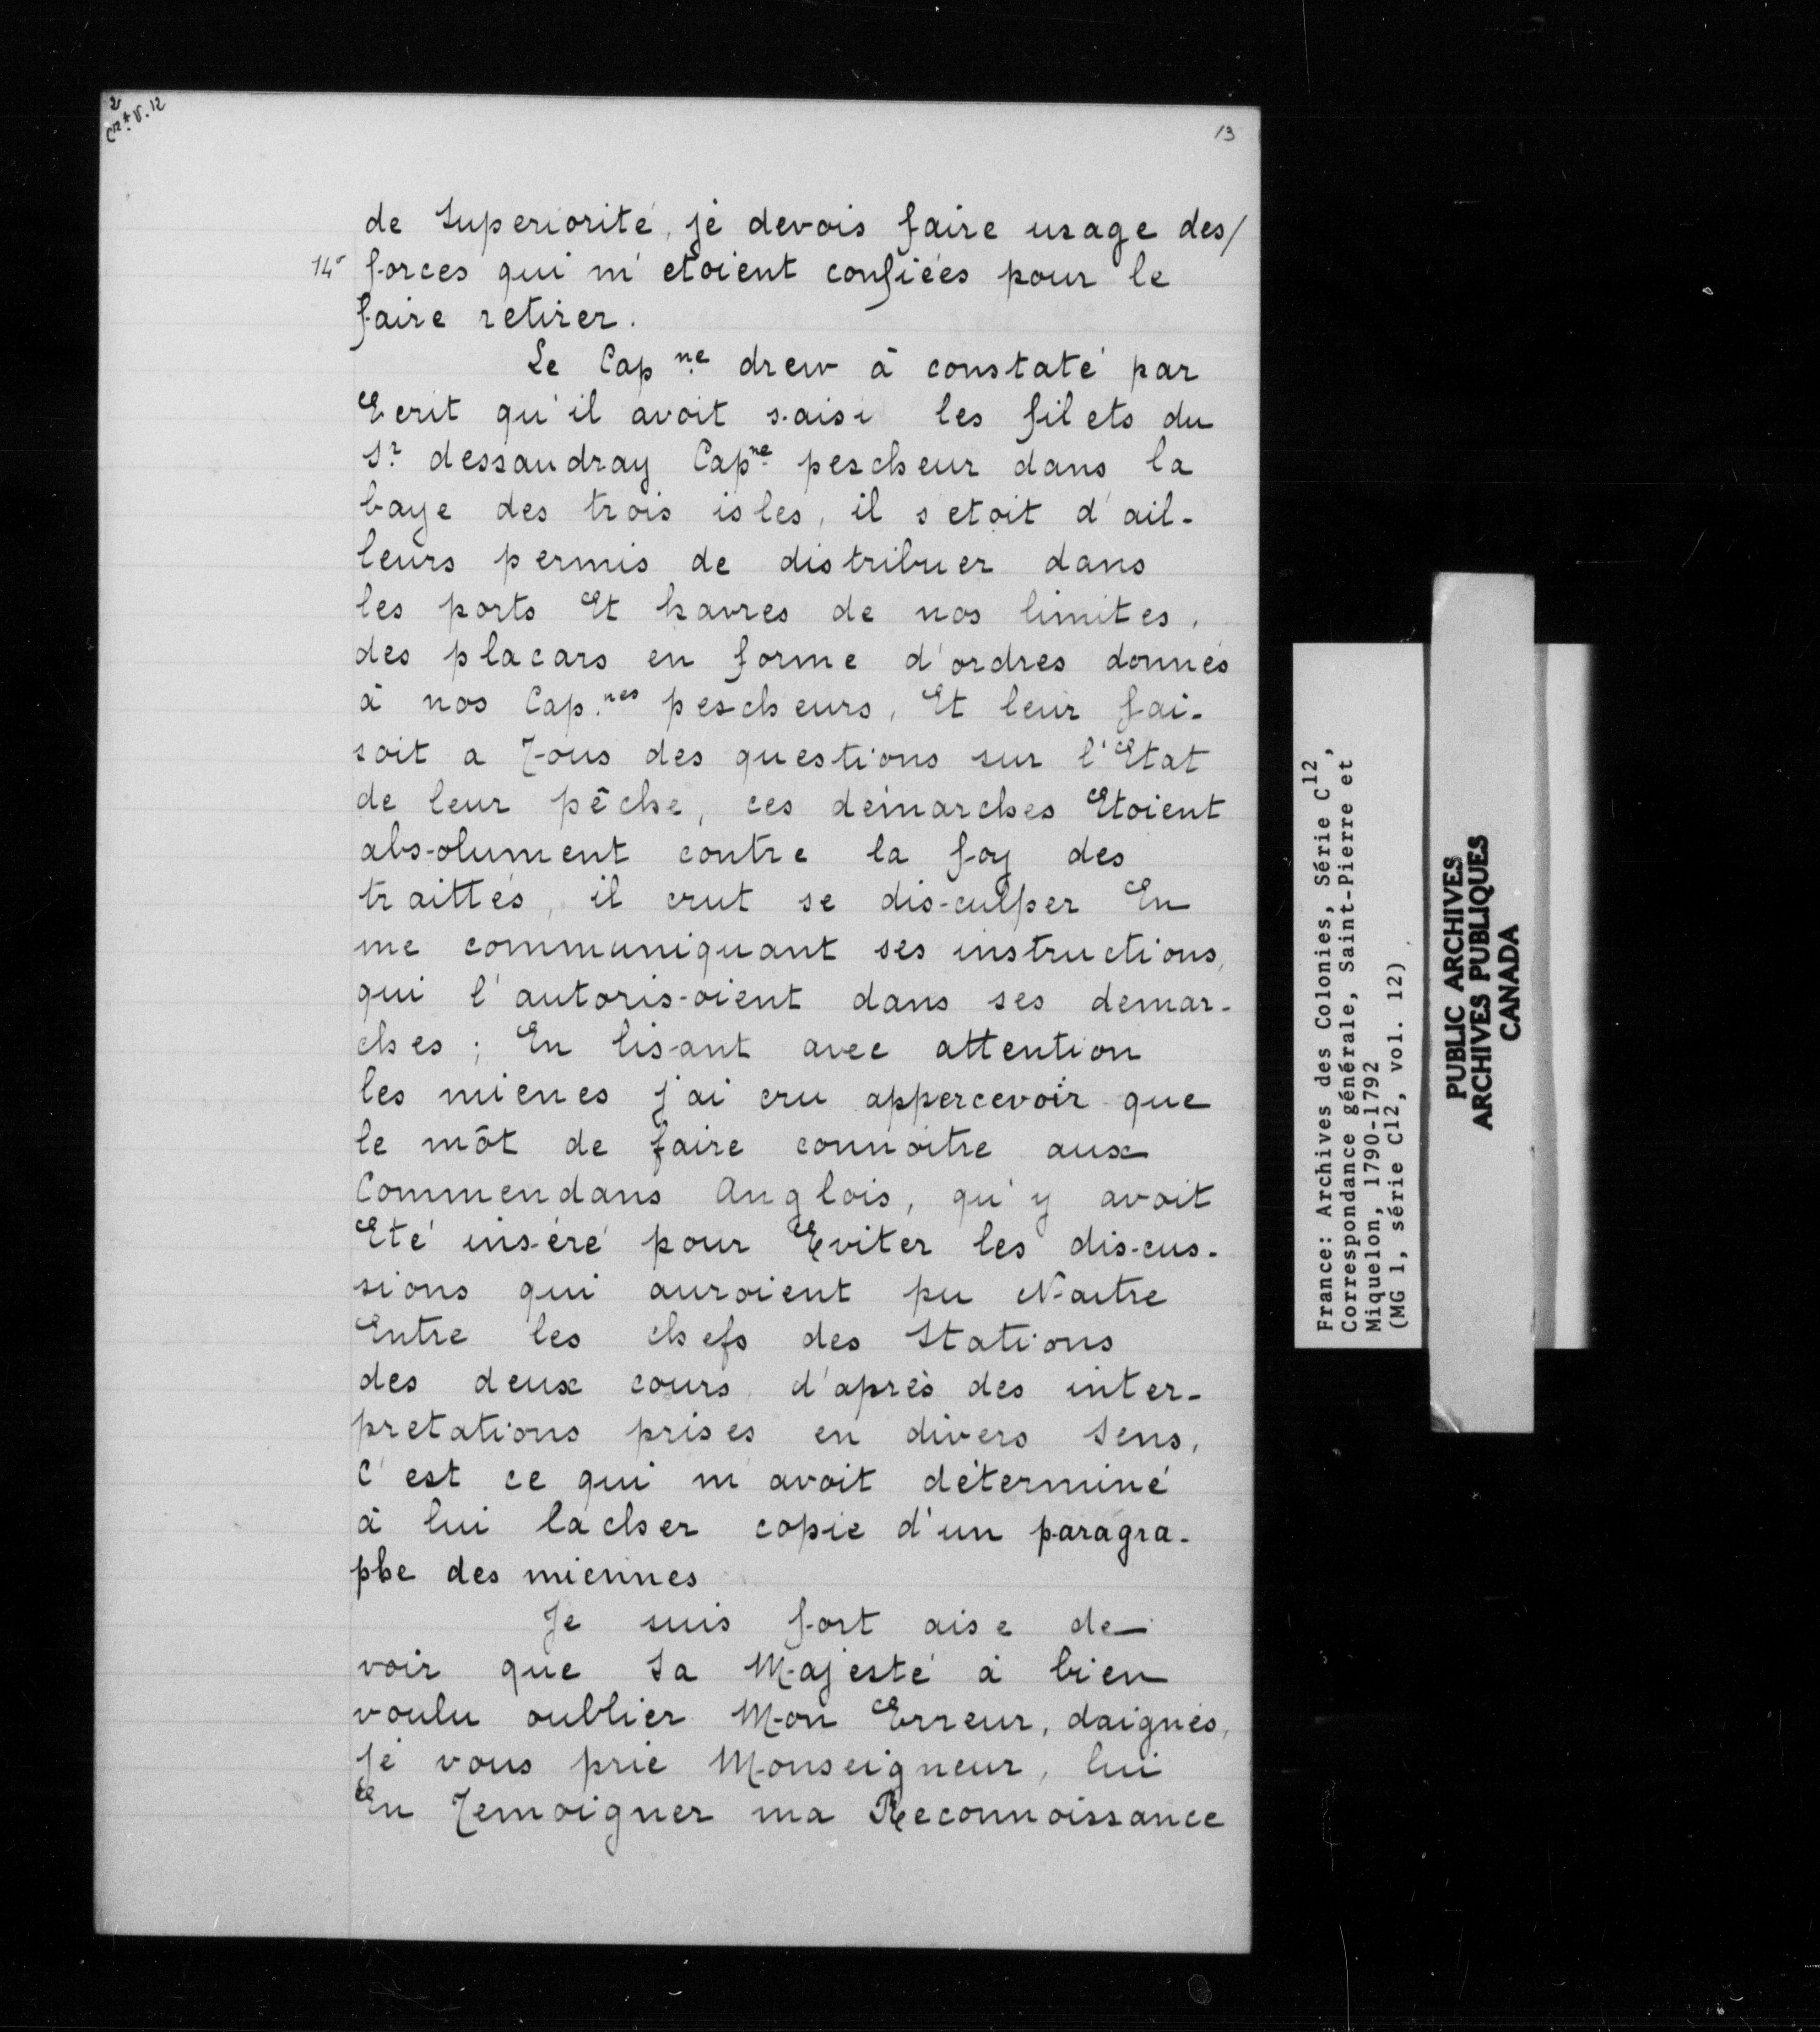 13
de Superiorité, je devois faire usage des/
14 forces qui m'etoient confiées pour le
faire retirer.
Le Cap.ne drew à constaté par
Ecrit qu'il avoit saisi les filets du
Sr. dessaudray Cap.ne pescheur dans la
baye des trois isles, il s'etoit d'ail-
leurs permis de distribuer dans
les ports Et havres de nos limites,
des placars en forme d'ordres donnés
à nos Cap.nes pescheurs, Et leur fai-
soit a Tous des questions sur l'Etat
de leur pêche, ces démarches Etoient
absolument contre la foy des
traittés, il crut se disculper En
me communiquant ses instructions,
qui l'autorisoient dans ses demar-
ches; En lisant avec attention
les mienes j'ai cru appercevoir que
le môt de faire connoitre aux
Commendans Anglois, qu'y avoit
Eté inséré pour Eviter les discus-
sions qui auroient pu Naitre
Entre les chefs des Stations
des deux cours, d'après des inter-
pretations prises en divers Sens,
C'est ce qui m'avoit déterminé
à lui lacher copie d'un paragra-
phe des miennes
Je suis fort aise de
voir que Sa Majesté à bien
voulu oublier Mon Erreur, daignés,
Je vous prie Monseigneur, lui
En Temoigner ma Reconnoissance
France: Archives des Colonies, Série C12,
Correspondance générale, Saint-Pierre et
Miquelon, 1790-1792
(MG 1, série C12, vol. 12)
PUBLIC ARCHIVES
ARCHIVES PUBLIQUES
CANADA